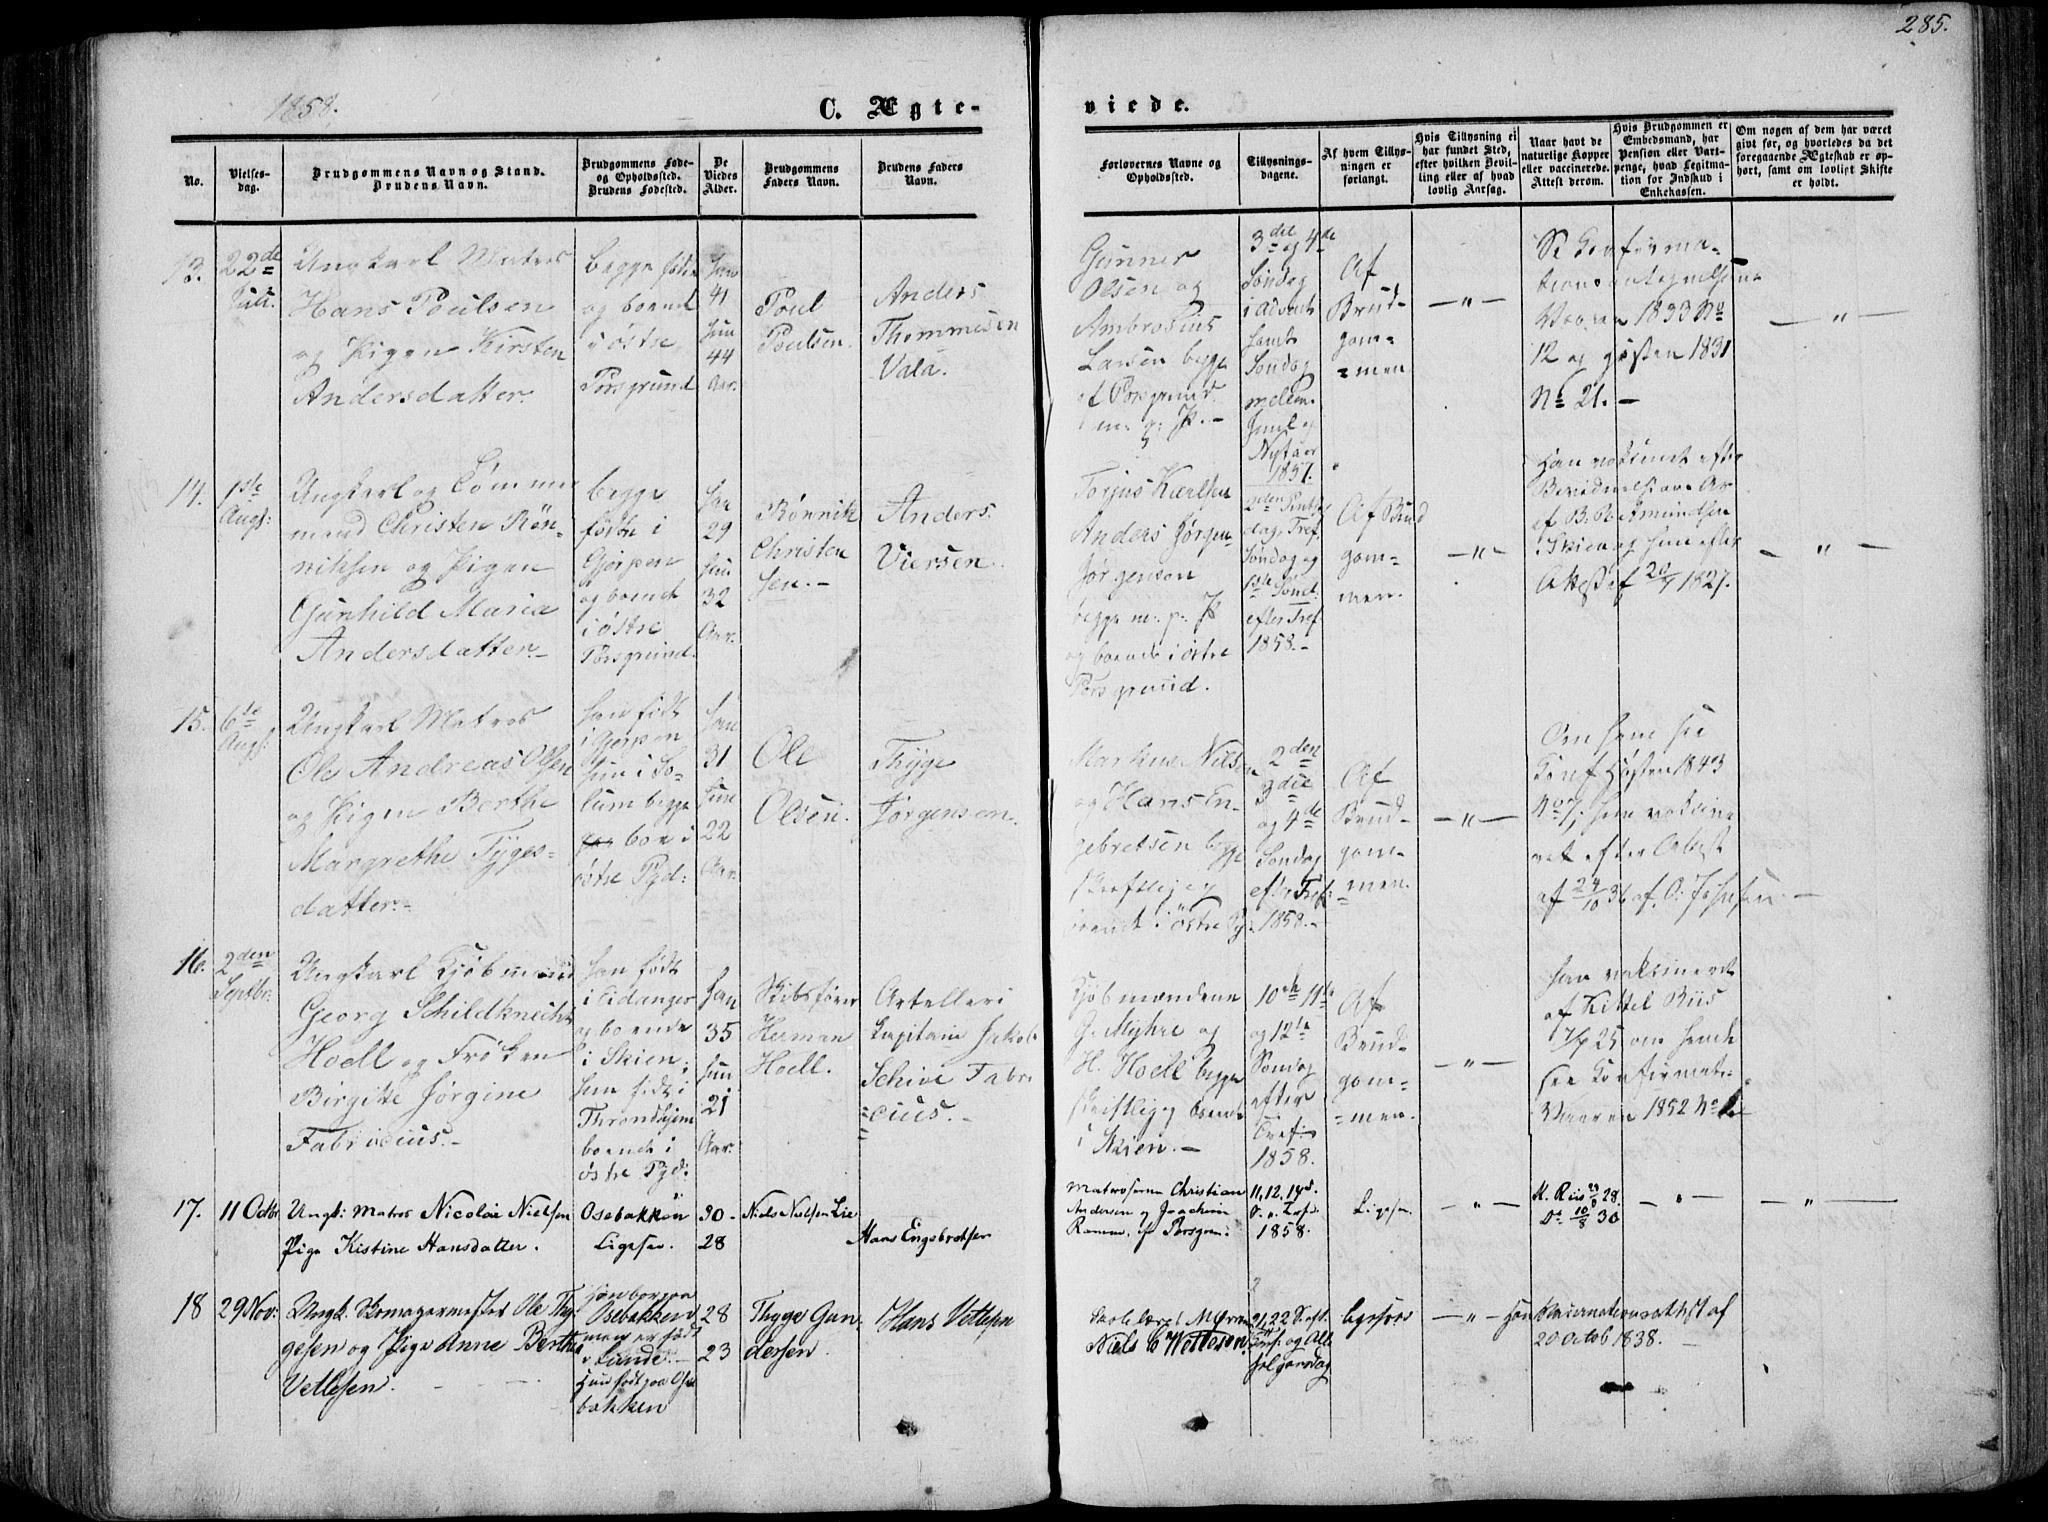 285.
1858.
C. Ægte-
viede.
No.
Vielses-
dag.
Brudgommens Navn og Stand.
Brudens Navn.
Brudgommens Føde-
og Opholdssted.
Brudens Fødested.
De
Viedes
Alder.
Brudgommens
Faders Navn.
Brudens Faders
Navn.
Forlovernes Navne og
Opholdssted.
Tillysnings-
dagene.
Af hvem Tillys-
ningen er
forlangt.
Hvis Tillysning ei
har fundet Sted,
efter hvilken Bevil-
ling eller af hvad
lovlig Aarsag.
Naar havt de
naturlige Kopper
eller vaccinerede.
Attest derom.
Hvis Brudgommen er
Embedsmand, har
Pension eller Vart-
penge, hvad Legitima-
tion for Indskud i
Enkekassen.
Om nogen af dem har været
givt før, og hvorledes da det
foregaaende Ægteskab er op-
hørt, samt om lovligt Skifte
er holdt.
13.
22de
Juli.
Ungkarl Matros
Hans Poulsen
og Pigen Kirsten
Andersdatter.
begge fødte
og boende
i østre
Porsgrund
han
41
hun
44
Aar.
Poul
Poulsen.
Anders
Thommesen
Vala.
Gunner
Olsen og
Ambrosius
Larsen begge
af Porsgrund
m. p. P. -
3die og 4de
Søndag
i Advent
samt
Søndag
mellem
Juul og
Nytaar
1857.
Af
Brud-
gom-
=men
— " —
Se Confirma-
Vaaren 1833 No
12 og Høsten 1831
No 21. —
— " —
14.
1ste
Augs:
Ungkarl og Tømmer
mand Christen Røn-
niksen og Pigen
Gunhild Maria
Andersdatter. -
begge
fødte i
Gjerpen
og boende
i østre
Porsgrund.
han
29
hun
32
Aar.
Rønnik
Christen
sen. -
Anders
Viersen.
Torjus Karlsen
Anders Jørgen-
Jørgensen
begge m. p. P
og boende i østre
Porsgrund.
2den Pintse
dag, Tref.
Søndag og
1ste Sønd:
efter Tref
1858. -
Af Brud
gom-
men.
— " —
Han vaksineret efter
af B. N. Amundsen
i Skien og hun efter
Attest af 20/7 1827.
— " —
15.
6te
Augs:
Ungkarl Matros
Ole Andreas Olsen
og Pigen Berthe
Margrethe Tyges-
datter. -
han født
i Gjerpen
hun i So-
lum begge
boe i
østre Pgd:
han
31
hun
22
Aar.
Ole
Olsen.
Thyge
Jørgensen.
Markus Nilsen
og Hans En-
gebretsen begge
skriftlig og
boende i Østre Pg:
2den
3die
og 4de
Søndag
eftr Tref:
1858. -
Af
Brud-
gom-
=men.
— " —
Om ham see
Conf Høsten 1843
No 7; hun vaksine
ret efter Attest
af 24/10 36 af O. Johnsen. —
16.
2den
Septbr:
Ungkarl Kjøbmand
Georg Schildknecht
Hoell og Frøken
Birgitte Jørgine
Fabricius. -
han født
i Eidanger
og boende
i Skien;
hun født i
Throndhjem
boende i
østre Pgd:
han
35
hun
21
Aar.
Skibsfører
Herman
Hoell.
Artelleri
Kapitain Jakob
Schive Fabri
=cius. -
Kjøbmændene
G. Myhre og
H. Hoell begge
skriftlig og boende
i Skien. —
10de 11te
og 12te
Søndag
efter
Tref:
1858.
Af
Brud-
gom-
=men.
— " —
Han vaksineret
af Kittel Riis
25 om hende
see Confirmat.
Vaaren 1852 No
17.
11 Octbr
Ungk: Matros Nicolai Nielsen
Pige Kistine Hansdatter.
Osebakken
Ligesaa.
30 -
28
Niels Nielsen Lie
Hans Engebretsen
Matroserne Christian
Andersen og Joachim
Ramm. af Porsgrn:
11, 12, 14d.
S. e. Trefd.
1858.
Ligesaa.
— " —
K. Riis 29/8 28.
Do 10/8 30
— " —
— " —
18
29 Nov:
Ungk. Skomagermester Ole Thy-
gesen og Pige Anne Berthe
Vetlesen.
han bor paa
Osebakken
men er født
i Lunde. -
Hun født paa Ose
bakken
28
23
Thyge Gun-
dersen.
Hans Vetlesen
Niels C Wettesen.
21, 22 S. eft.
Tref. og Alle
helgensdag
ligesaa
— " —
Han Vaccinationsattest af
20 Octob 1838. —